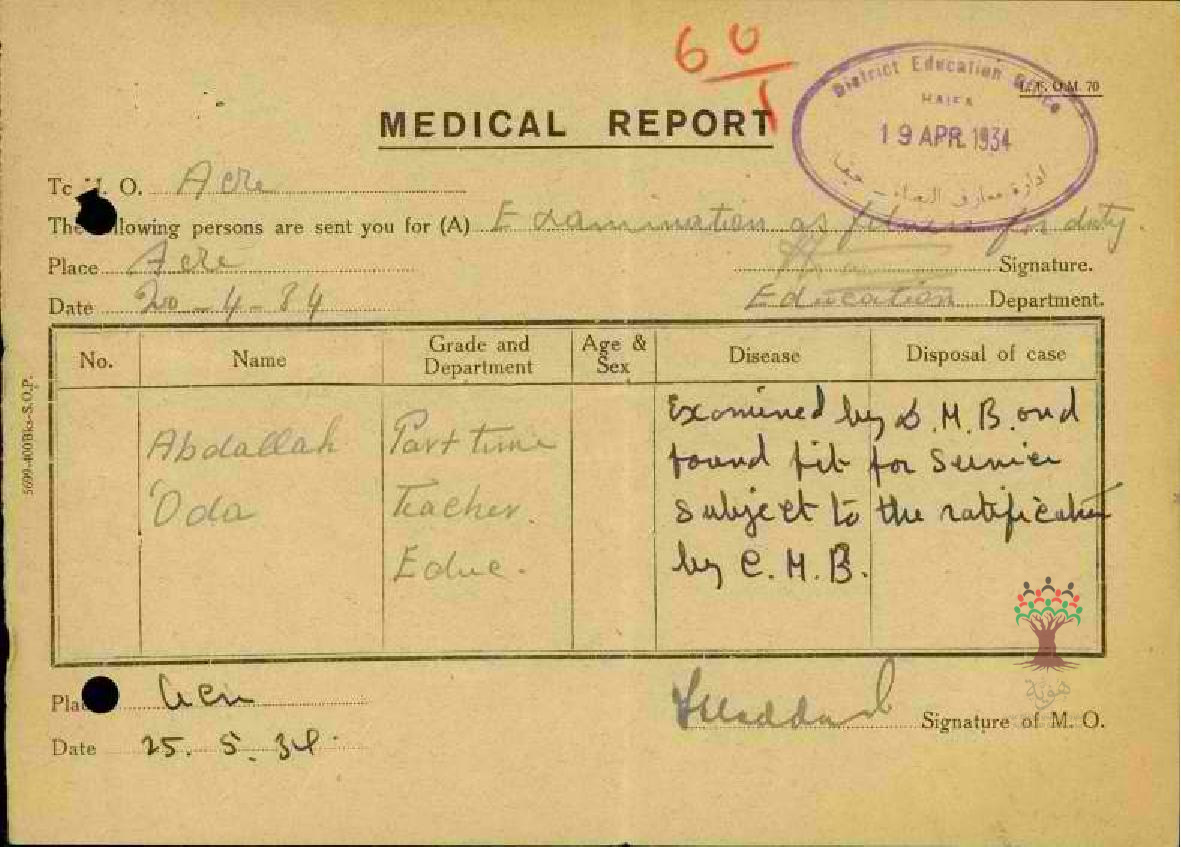 60
1
District Education Office
HAIFA
19 APR. 1934
ادارة معارف القضاء - حيفا
O.M. 70
MEDICAL REPORT
To M. O. Acre
The following persons are sent you for (A) Examination as fitness for duty.
Place Acre Signature.
Date 20-4-34 Education Department.
No. Name Grade and Department Age & Sex Disease Disposal of case
Abdallah 'Oda
Part time Teacher. Educ.
Examined by D.M.B. and
found fit for service
subject to the ratification
by C.M.B.
5699-400Bks-S.O.P.
هوية
Place Acre
Signature of M. O.
Date 25.5.34.